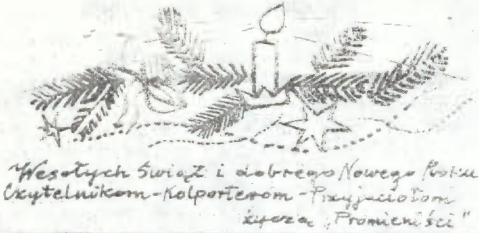 Wesołych Świąt i dobrego Nowego Roku
Czytelnikom-Kolporterom-Przyjaciołom
życzą „Promieniści"